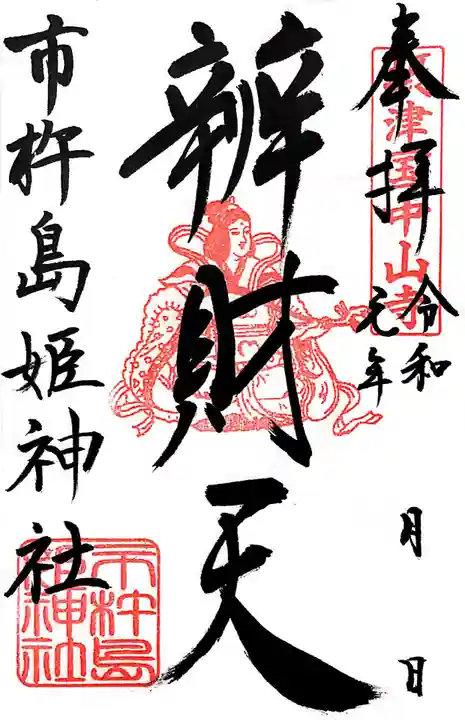 奉拝
令和
元年
月 日
辨財天
市杵島姫神社
摂津国中山寺
市杵島
姫神社